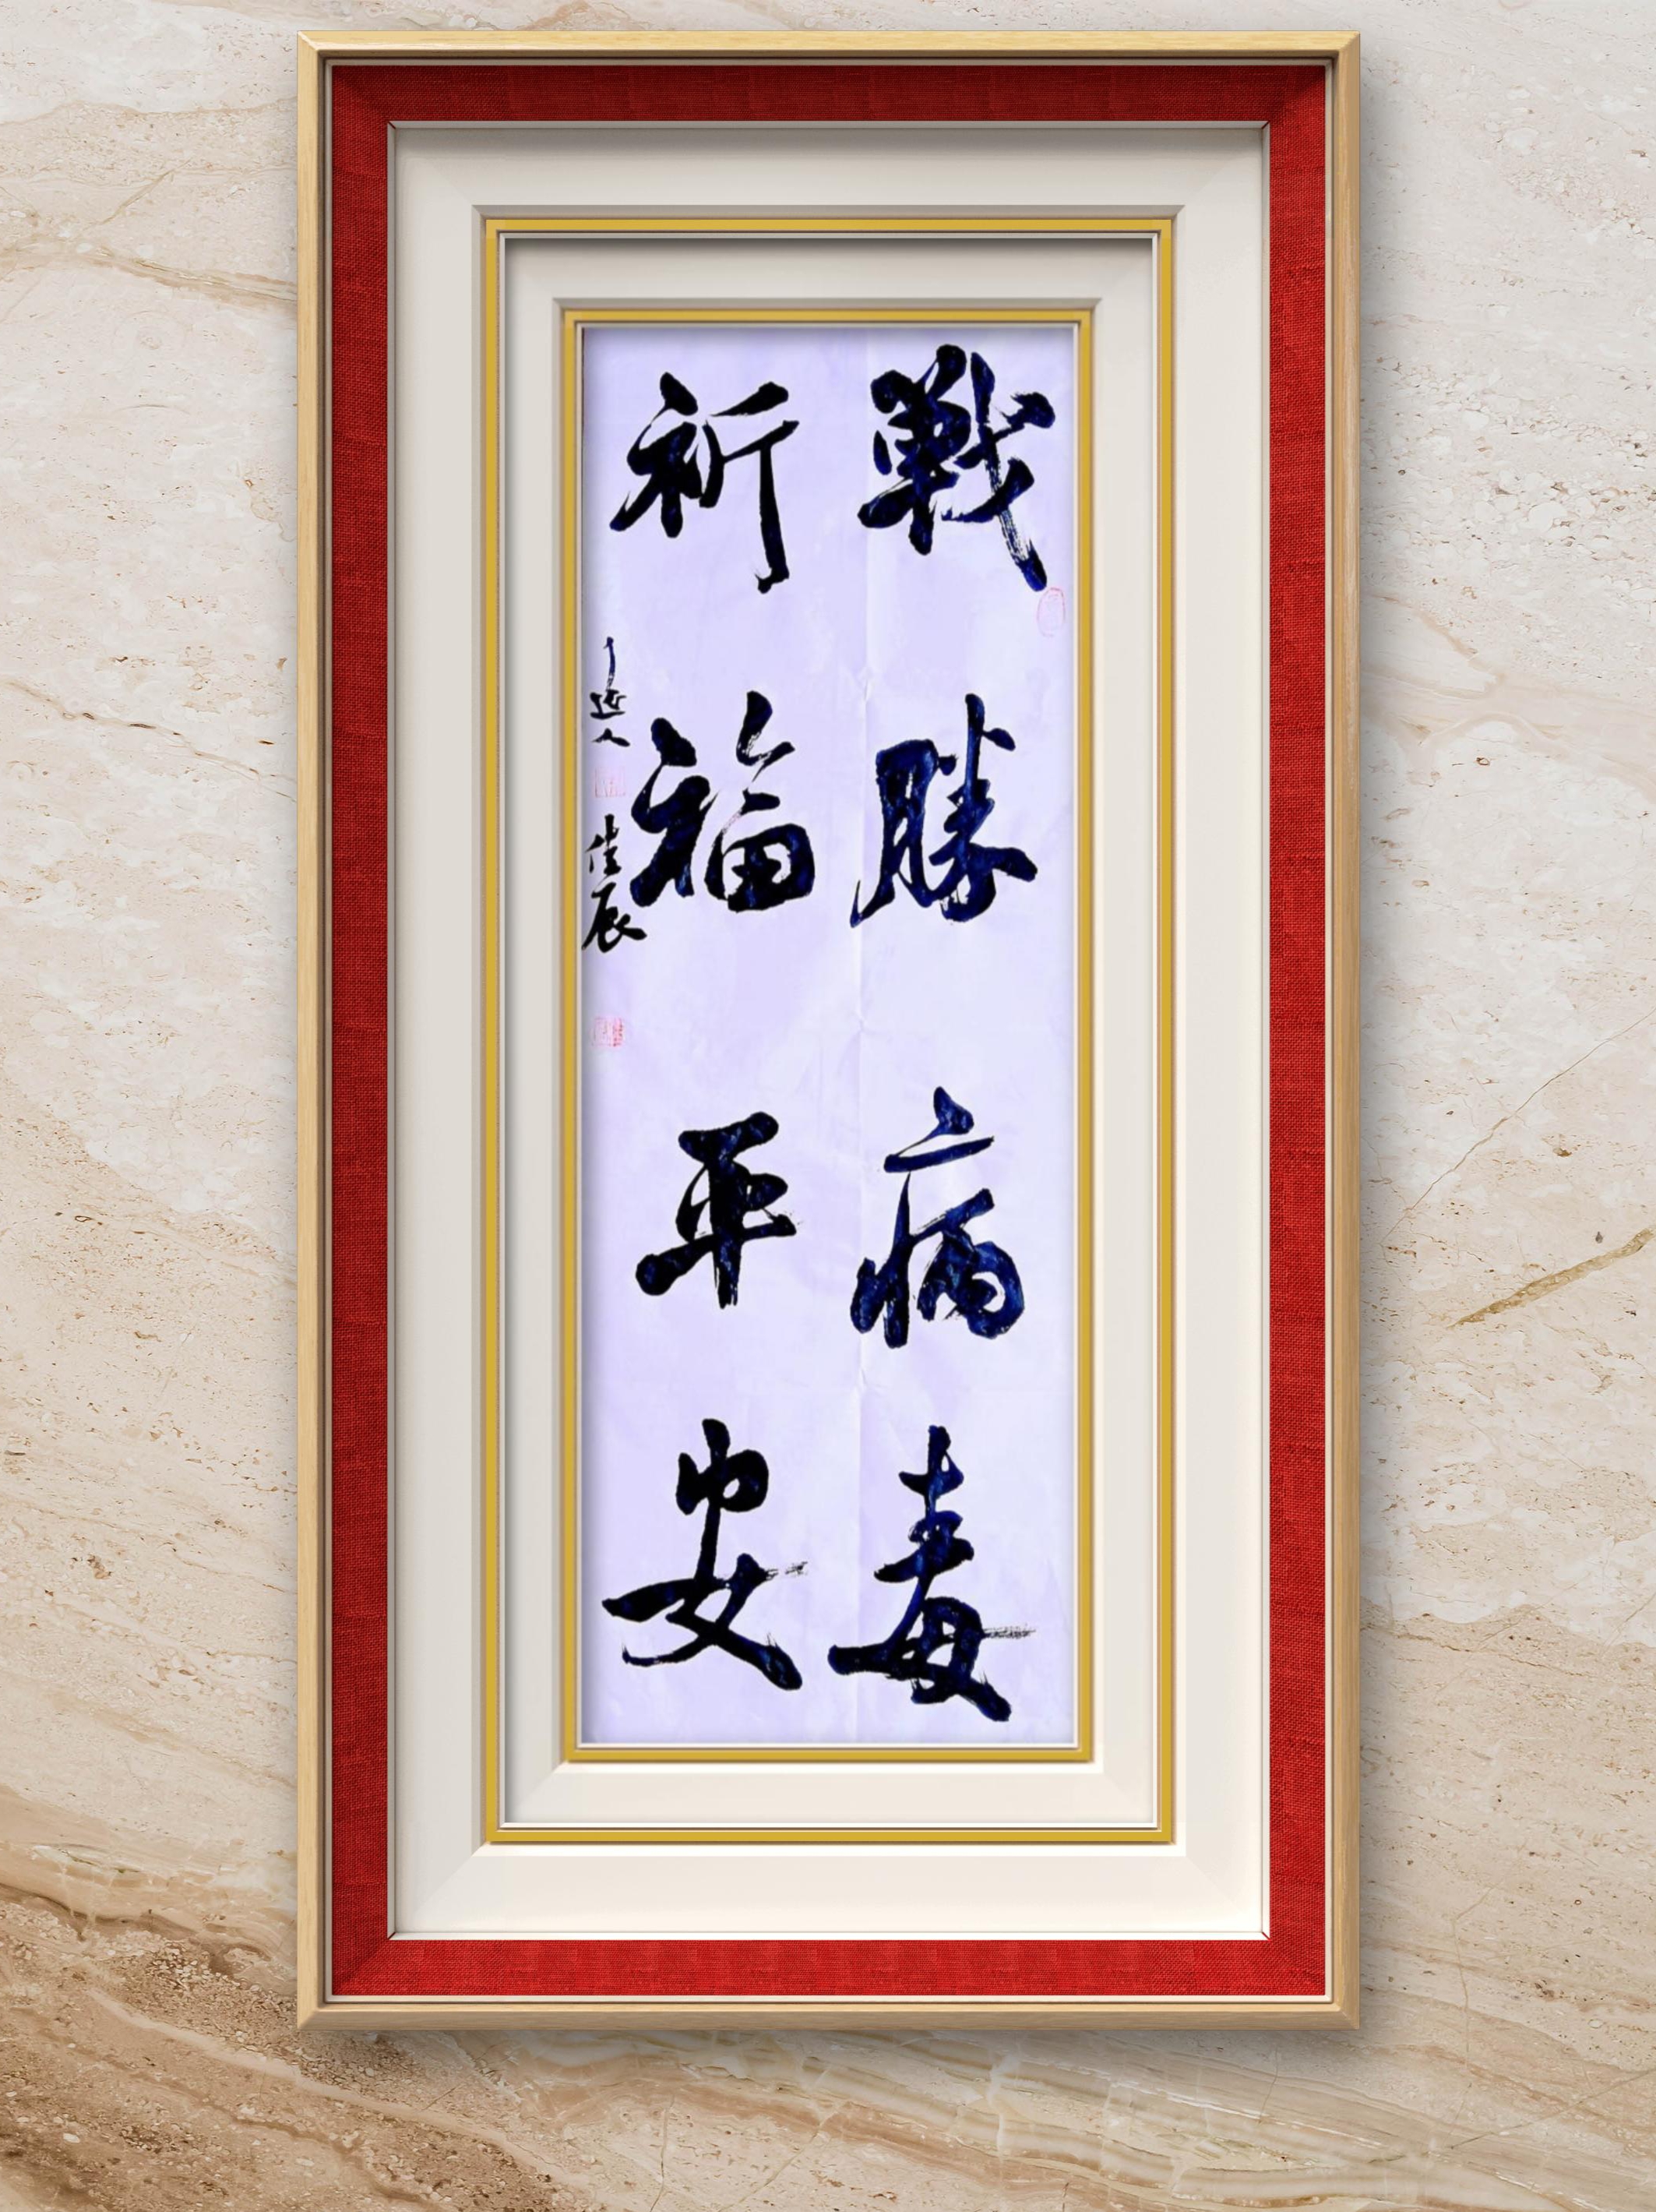 戰勝病毒
祈福平安
佳辰